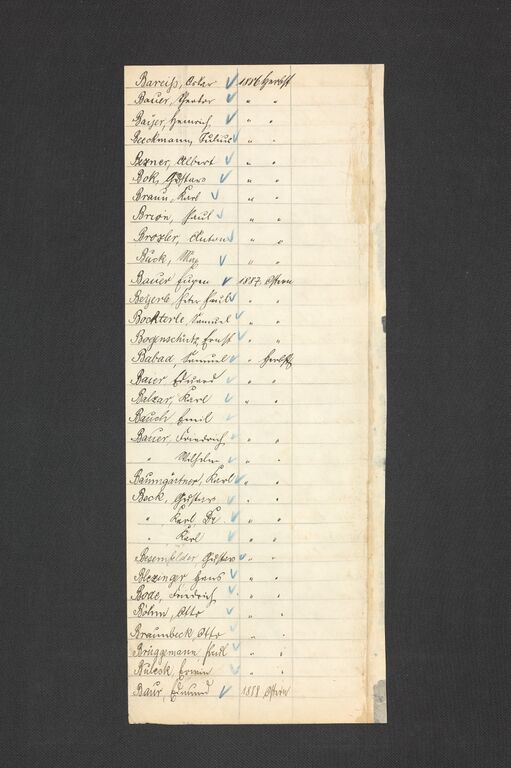 Bareiß, Oskar 1886 Herbst
Bauer, Theodor " "
Baijer, Heinrich " "
Beeckmann, Julius " "
Bezner, Albert " "
Bok, Gustav " "
Braun, Karl " "
Brion, Paul " "
Broxler, Anton " "
Buck, Max " "
Bauer Eugen 1887 Ostern
Peter Paul " "
Bockterle, Samuel " "
Bogenschütz, Ernst " "
Babad, Samuel " Herbst
Baier Eduard " "
Balzar, Karl " "
Bauch Emil
Bauer, Friedrich " "
" Wilhelm " "
Baumgärtner, Karl " "
Beck, Gustav " "
" Karl, Dr " "
" Karl " "
Besenfelder, Gustav " "
Blezinger, Hans " "
Bode, Friedrich " "
Böhm, Otto " "
Braunbeck, Otto " "
Brüggemann " "
Erwin " "
Baur, Edmund 1888 Ostern